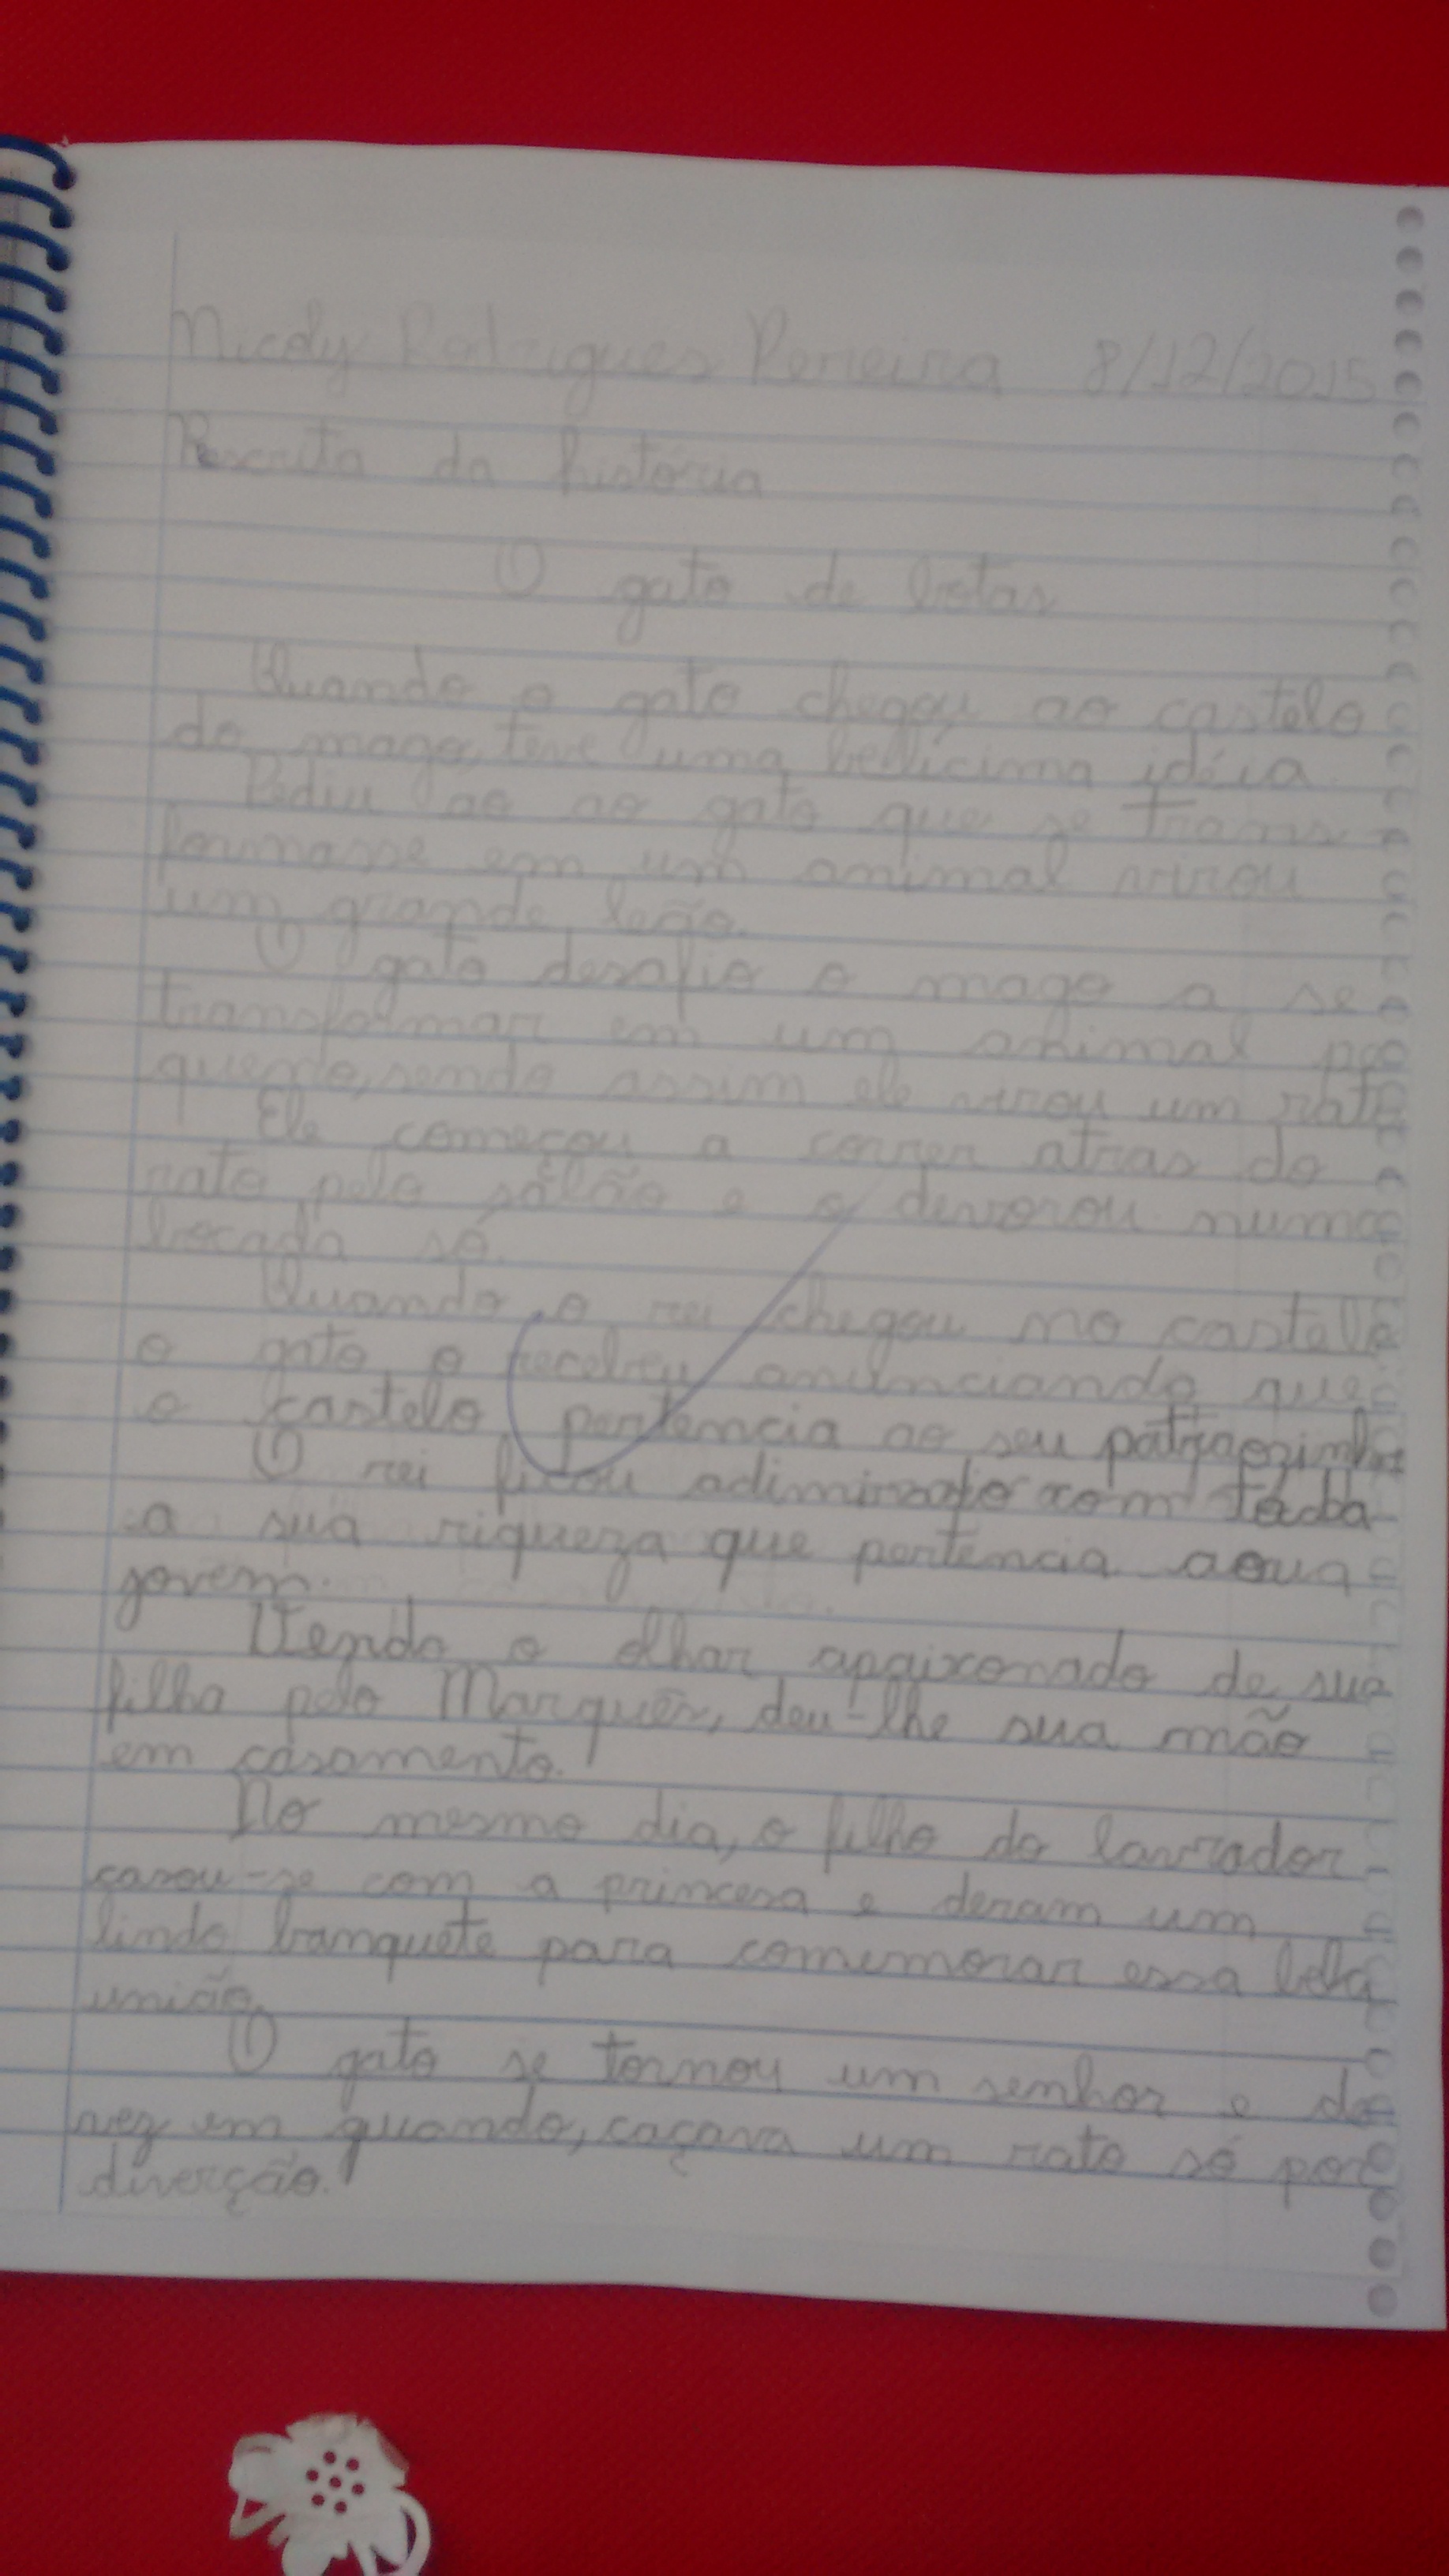 Rodrigues Pereira 8/12/2015
Reescrita da história
O gato de botas
Quando o gato chegou ao castelo
do mago, teve uma bellicima idéia.
Pediu ao ao gato que se trans
formasse em um animal virou
um grande leão.
O gato desafio o mago a se
transformar em um animal pe
queno, sendo assim ele virou um rato
Ele começou a correr atras do
rato pelo salão e o devorou numa
bocada só.
Quando o rei chegou no castelo
o gato o recebeu anunciando que
o castelo pertencia ao seu
O rei ficou adimirado com
a sua riqueza que pertencia
jovem.
Vendo o olhar apaixonado de sua
filha pelo Marquês, deu-lhe sua mão
em casamento.
No mesmo dia, o filho do lavrador
casou-se com a princesa e deram um
lindo banquete para comemorar essa bela
união.
O gato se tornou um senhor e de
vez em quando, caçava um rato só por
diverção.